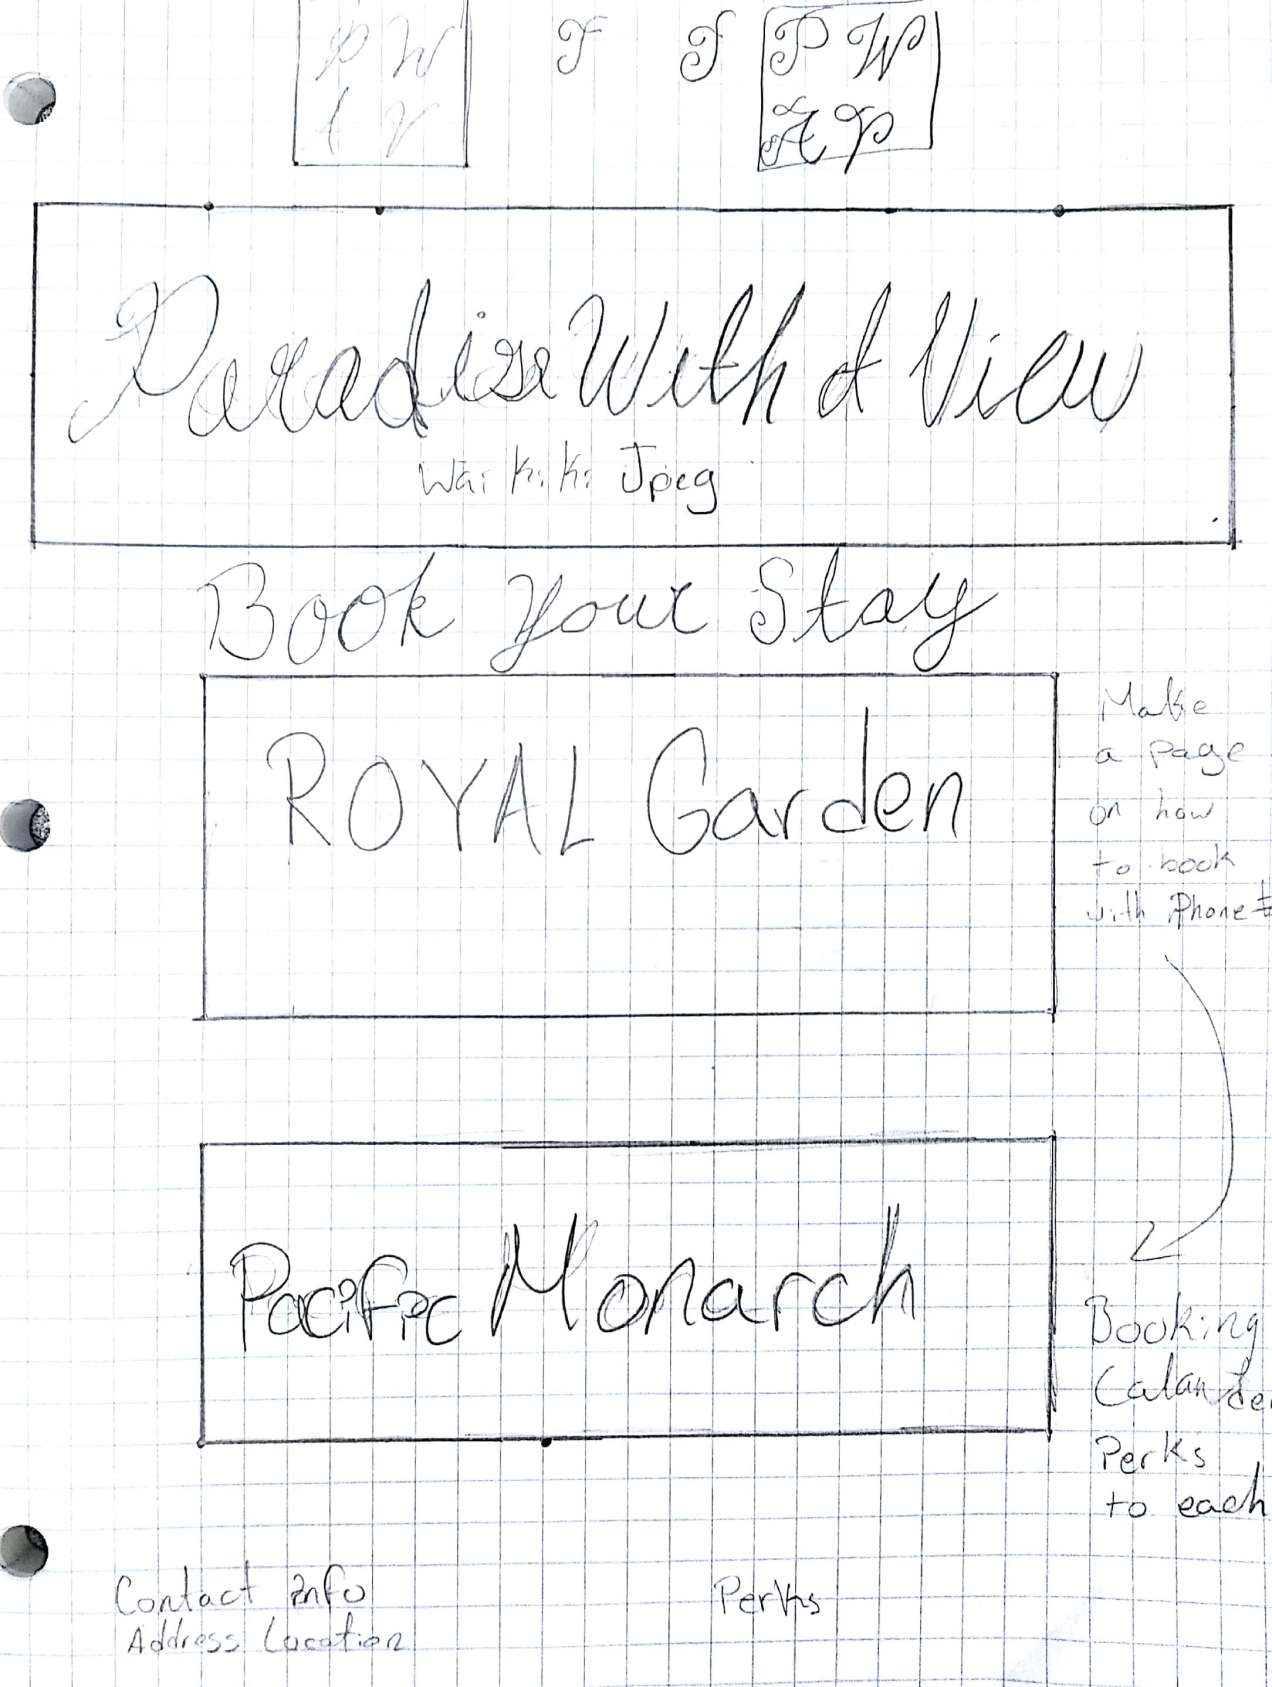 P W F F P W
A V A P
Paradise With A View
Waikiki Jpeg
Book Your Stay
ROYAL Garden
Make
a page
on how
to book
with Phone #
Pacific Monarch
Booking
Calander
Perks
to each
Contact info
Address Location
Perks